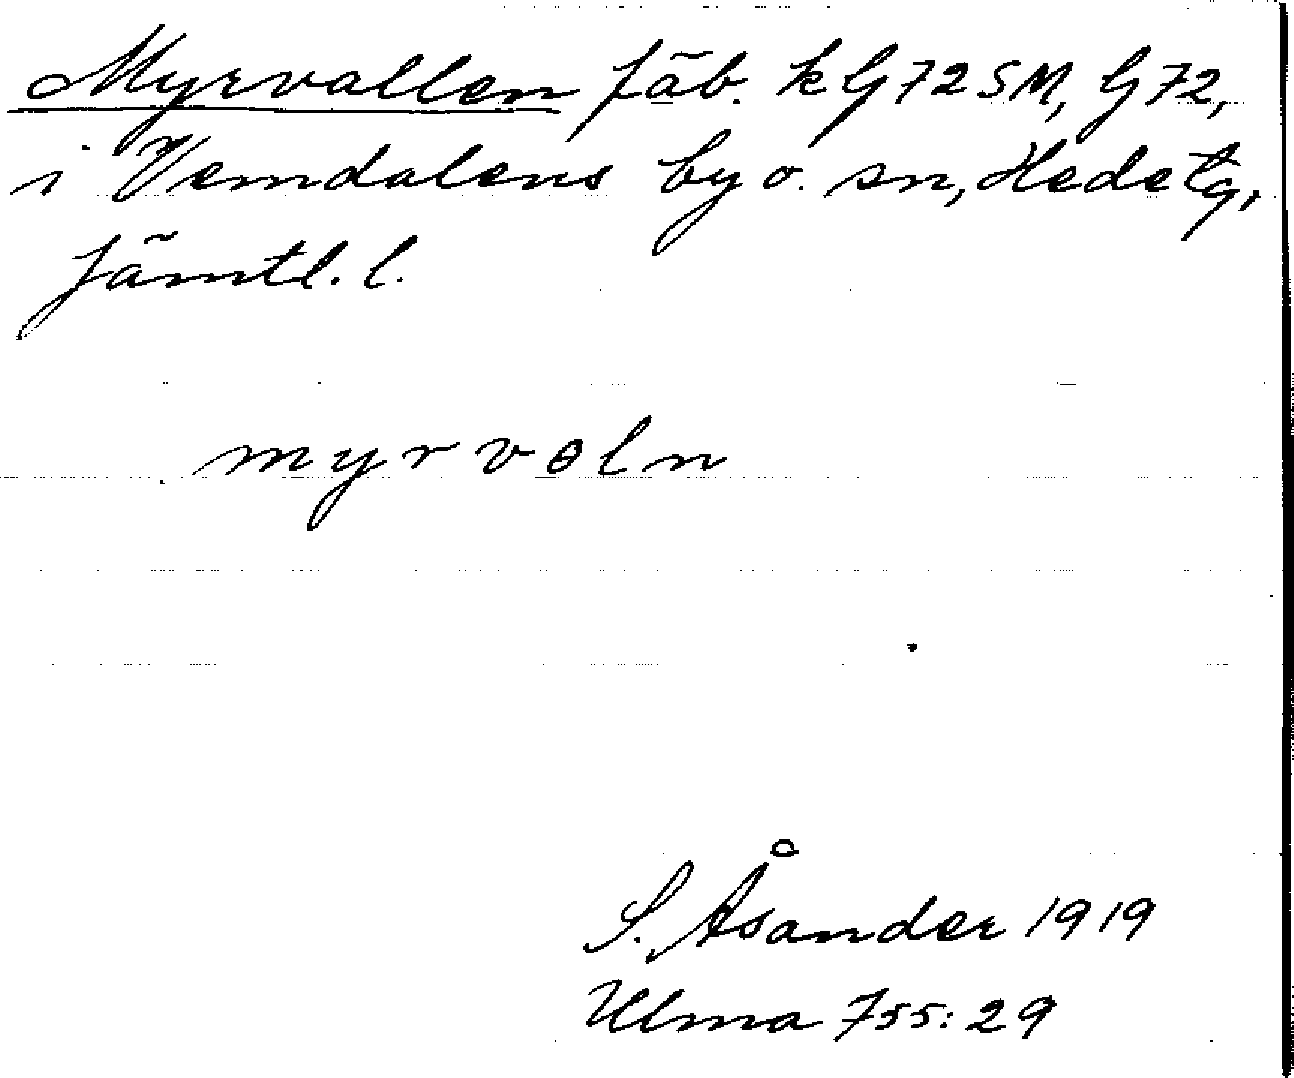 Myrvallen fäb. k G72SM, G72,
i Vemdalens by o. sn, Hede tg,
Jämtl. l.
myrvɵln
S. Åsander 1919
Ulma 755:29